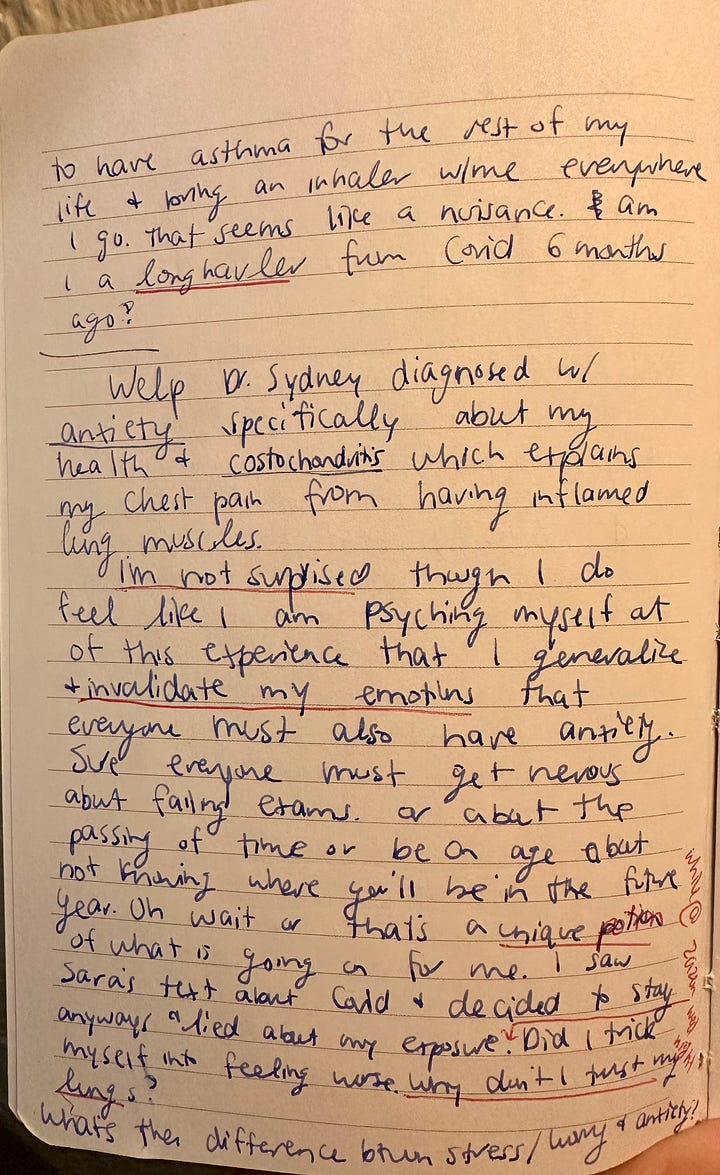 to have asthma for the rest of my
life & bring an inhaler w/me everywhere
I go. That seems like a nuisance. am
I a longhauler from Covid 6 months
ago?
Welp Dr. Sydney diagnosed w/
anxiety specifically about my
health & costochondritis which explains
my chest pain from having inflamed
lung muscles.
I'm not surprised though I do
feel like I am psyching myself at
of this experience that I generalize
& invalidate my emotions that
everyone must also have anxiety.
Sure everyone must get nervous
about failing exams. or about the
passing of time or be on age about
not knowing where you'll be in the future
year. Oh wait or that's a unique potion
of what is going on for me. I saw
Sara's text about Covid & decided to stay
anyways & lied about my exposure. Did I trick
myself into feeling worse. Why don't I trust my
lungs?
What's then difference btwn stress/worry & anxiety?